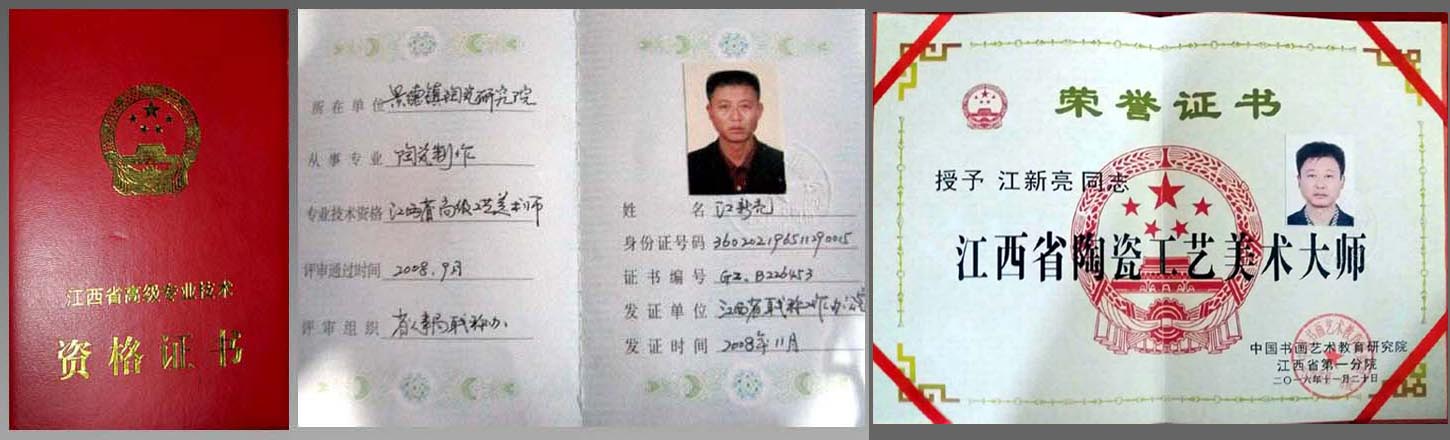 江西省高级专业技术
资格证书
所在单位 景德镇陶瓷研究院
从事专业 陶瓷制作
专业技术资格 江西省高级工艺美术师
评审通过时间 2008.9月
评审组织 省人事局职称办
姓名 江新亮
身份证号码 360202196511290015
证书编号 GZ.B226453
发证单位 江西省职称工作办公室
发证时间 2008年11月
荣誉证书
授予 江新亮同志
江西省陶瓷工艺美术大师
中国书画艺术教育研究院
江西省第一分院
二〇一六年十一月二十日